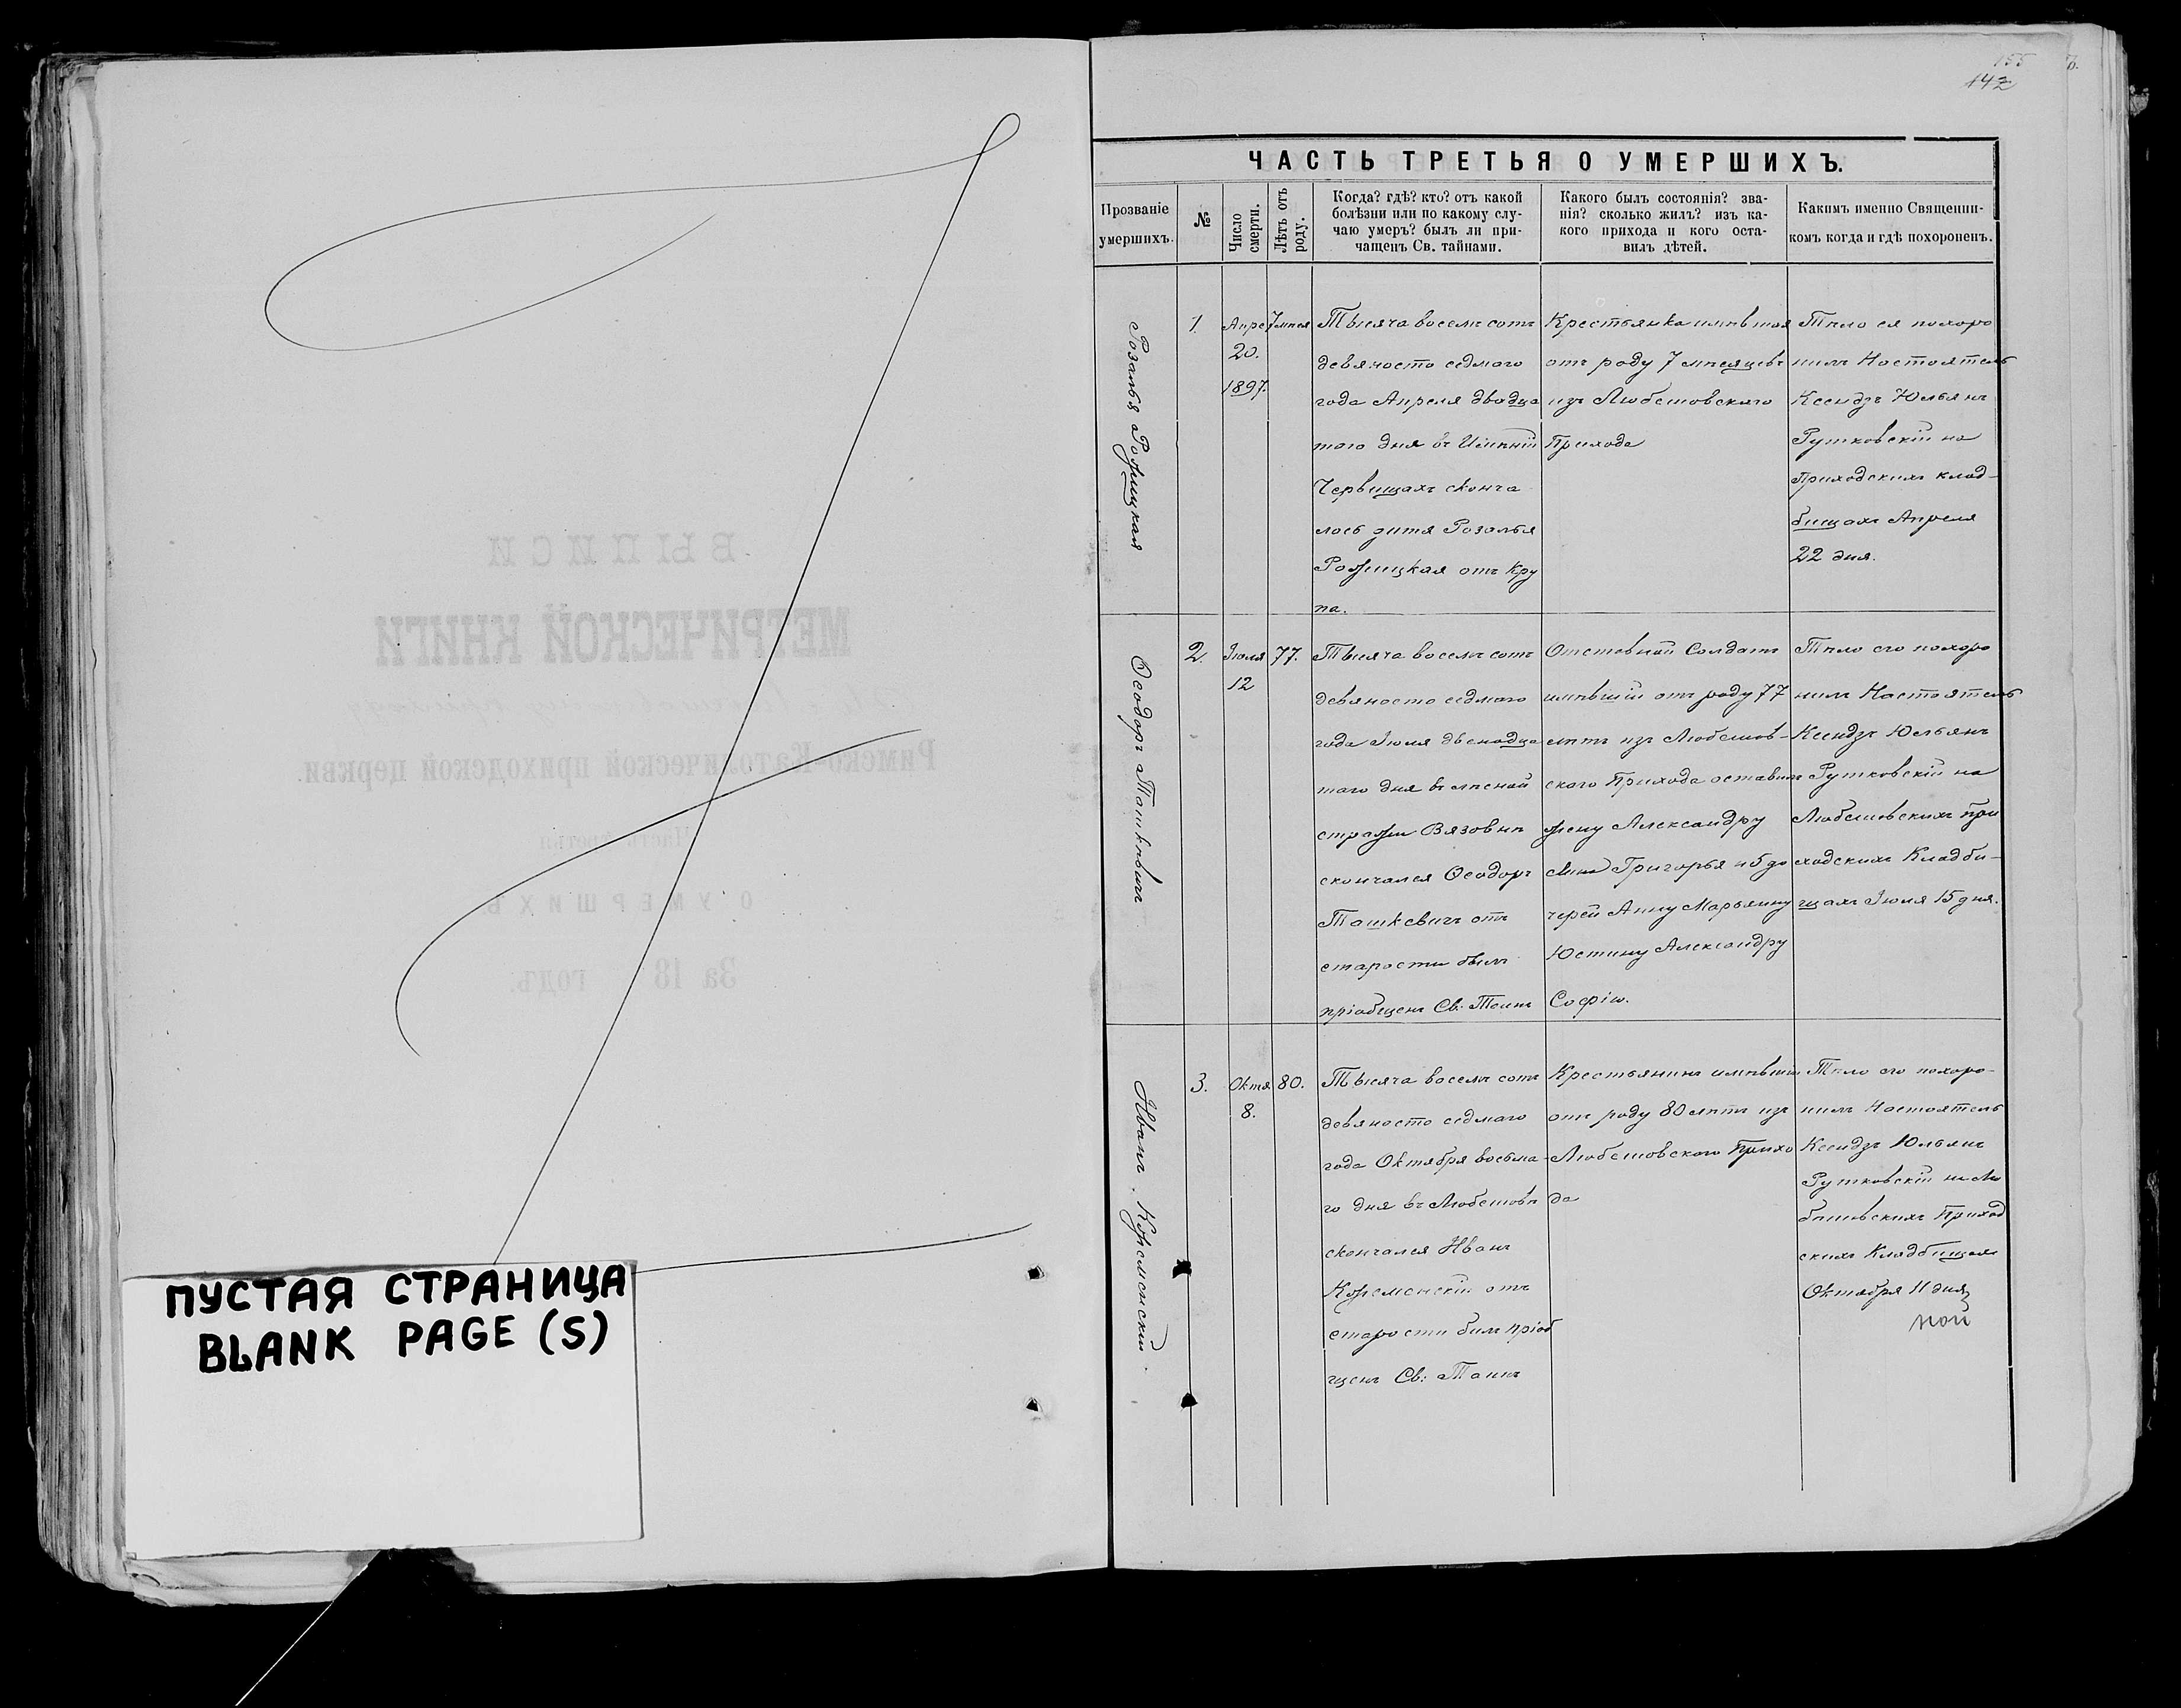 155
142
ЧАСТЬ ТРЕТЬЯ О УМЕРШИХЪ.
Прозваніе
умершихъ.
№
Число
смерти.
Лѣтъ отъ
роду.
Когда? гдѣ? кто? отъ какой
болѣзни или по какому слу-
чаю умеръ? былъ ли при-
чащенъ Св. тайнами.
Какого былъ состоянія? зва-
нія? сколько жилъ? изъ ка-
кого прихода и кого оста-
вилъ дѣтей.
Какимъ именно Священни-
комъ когда и гдѣ похороненъ.
Розалья Рожицкая
1
Апре
20.
1897.
7 мѣся
Тысяча восемъ сотъ
девяносто седмого
года Апреля двадца
того дня въ Имѣніи
Червищахъ сконча
лось дитя Розалья
Рожицкая отъ Кру
па.
Крестьянка имѣвшая
отъ роду 7 мѣсяцевъ
изъ Любешовского
Прихода
Тѣло ея похоро
нилъ Настоятель
Ксендзъ Юльянъ
Рутковскій на
Приходскихъ клад-
бищахъ Апреля
22 дня.
Ѳеодоръ Ташкѣвичъ
2.
Іюля
12
77.
Тысяча восемъ сотъ
девяносто седмого
года Іюля двенадца
того дня въ лѣсной
стражи Вязовнѣ
скончался Ѳеодоръ
Ташкевичъ отъ
старости былъ
пріобщенъ Св: Таинъ
Отставной Солдатъ
имѣвшій отъ роду 77
лѣтъ изъ Любешов-
ского Прихода оставилъ
жену Александру
сына Григорья и 5 до
черей Анну Марьянну
Юстину Александру
Софію.
Тѣло его похоро
нилъ Настоятель
Ксендзъ Юльянъ
Рутковскій на
Любешовскихъ При
ходскихъ Кладби-
щахъ Іюля 15 дня.
Иванъ
3.
Октя
8.
80.
Тысяча восемъ сотъ
девяносто седмого
года Октября восьма
го дня въ Любешовѣ
скончался Иванъ
отъ
старости былъ пріоб
щенъ Св: Таинъ
Крестьянинъ имѣвшій
отъ роду 80 лѣтъ изъ
Любешовского Прихо
да
Тѣло его похоро-
нилъ Настоятель
Ксендзъ Юльянъ
Рутковскій на Лю
бешовскихъ Приход
скихъ Кладбищахъ
Октября 11 дня
ВЫПИСИ
МЕТРИЧЕСКОЙ КНИГИ
Римско-Католической приходской церкви.
Часть третья
О УМЕРШИХЪ
За 18 годъ.
ПУСТАЯ СТРАНИЦА
BLANK PAGE (S)